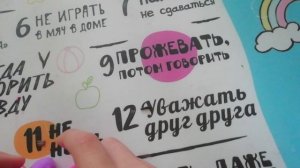 6 НЕ ИГРАТЬ
В МЯЧ В ДОМЕ
7
не сдаваться
9 ПРОЖЕВАТЬ,
ПОТОМ ГОВОРИТЬ
У
11 НЕ
12 Уважать
друг друга
ДАЖЕ